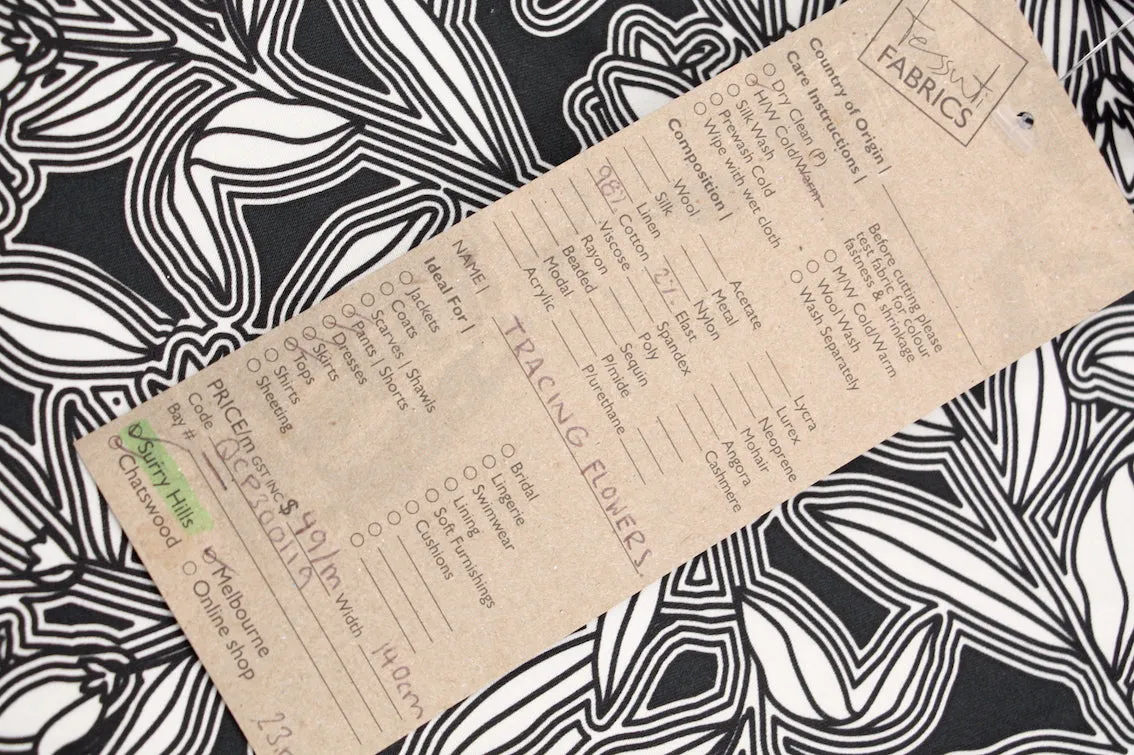 Tessuti
FABRICS
Country of Origin |
Care Instructions |
Dry Clean (P)
H/W Cold/Warm
Silk Wash
Prewash Cold
Wipe with wet cloth
Before cutting please
test fabric for colour
fastness & shrinkage
M/W Cold/Warm
Wool Wash
Wash Separately
Composition |
Wool
Silk
Linen
98% Cotton
Viscose
Rayon
Beaded
Modal
Acrylic
Acetate
Metal
Nylon
2% Elast
Spandex
Poly
Sequin
P/mide
P/urethane
Lycra
Lurex
Neoprene
Mohair
Angora
Cashmere
NAME | TRACING FLOWERS
Ideal For |
Jackets
Coats
Scarves | Shawls
Pants | Shorts
Dresses
Skirts
Tops
Shirts
Sheeting
Bridal
Lingerie
Swimwear
Lining
Soft Furnishings
Cushions
PRICE/m GST INC $ 49/m Width 140cm
Code QCP300119
Bay #
Surry Hills
Chatswood
Melbourne
Online shop